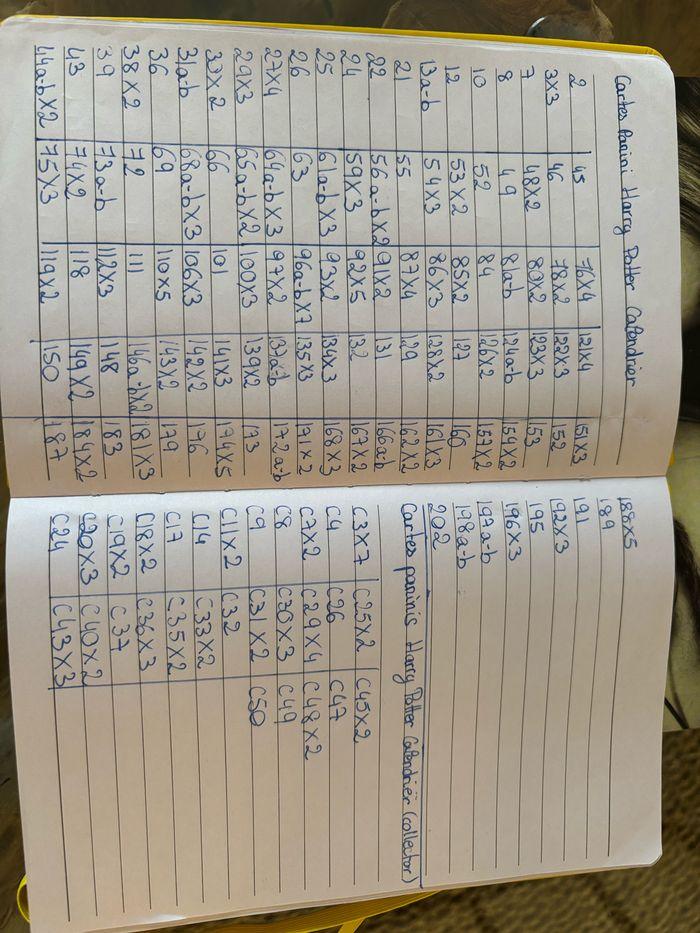 Cartes Panini Harry Potter Calendrier
2 45 76x4 121x4 151x3
3x3 46 78x2 122x3 152
7 48x2 80x2 123x3 153
8 49 81a-b 124a-b 154x2
10 52 84 126x2 157x2
12 53x2 85x2 127 160
13a-b 54x3 86x3 128x2 161x3
21 55 87x4 129 162x2
22 56a-bx2 91x2 131 166a-b
24 59x3 92x5 132 167x2
25 61a-bx3 93x2 134x3 168x3
26 63 96a-bx7 135x3 171x2
27x4 64a-bx3 97x2 137a-b 172a-b
29x3 65a-bx2 100x3 139x2 173
30x2 66 101 141x3 174x5
31a-b 68a-bx3 106x3 142x2 176
36 69 110x5 143x2 179
38x2 72 111 146a-bx2 181x3
39 73a-b 112x3 148 183
43 74x2 118 149x2 184x2
44a-bx2 75x3 119x2 150 187
188x5
189
191
192x3
195
196x3
197a-b
198a-b
202
Cartes paninis Harry Potter Calendrier (collector)
C3x7 C25x2 C45x2
C4 C26 C47
C7x2 C29x4 C48x2
C8 C30x3 C49
C9 C31x2 C50
C11x2 C32
C14 C33x2
C17 C35x2
C18x2 C36x3
C19x2 C37
C20x3 C40x2
C24 C43x3